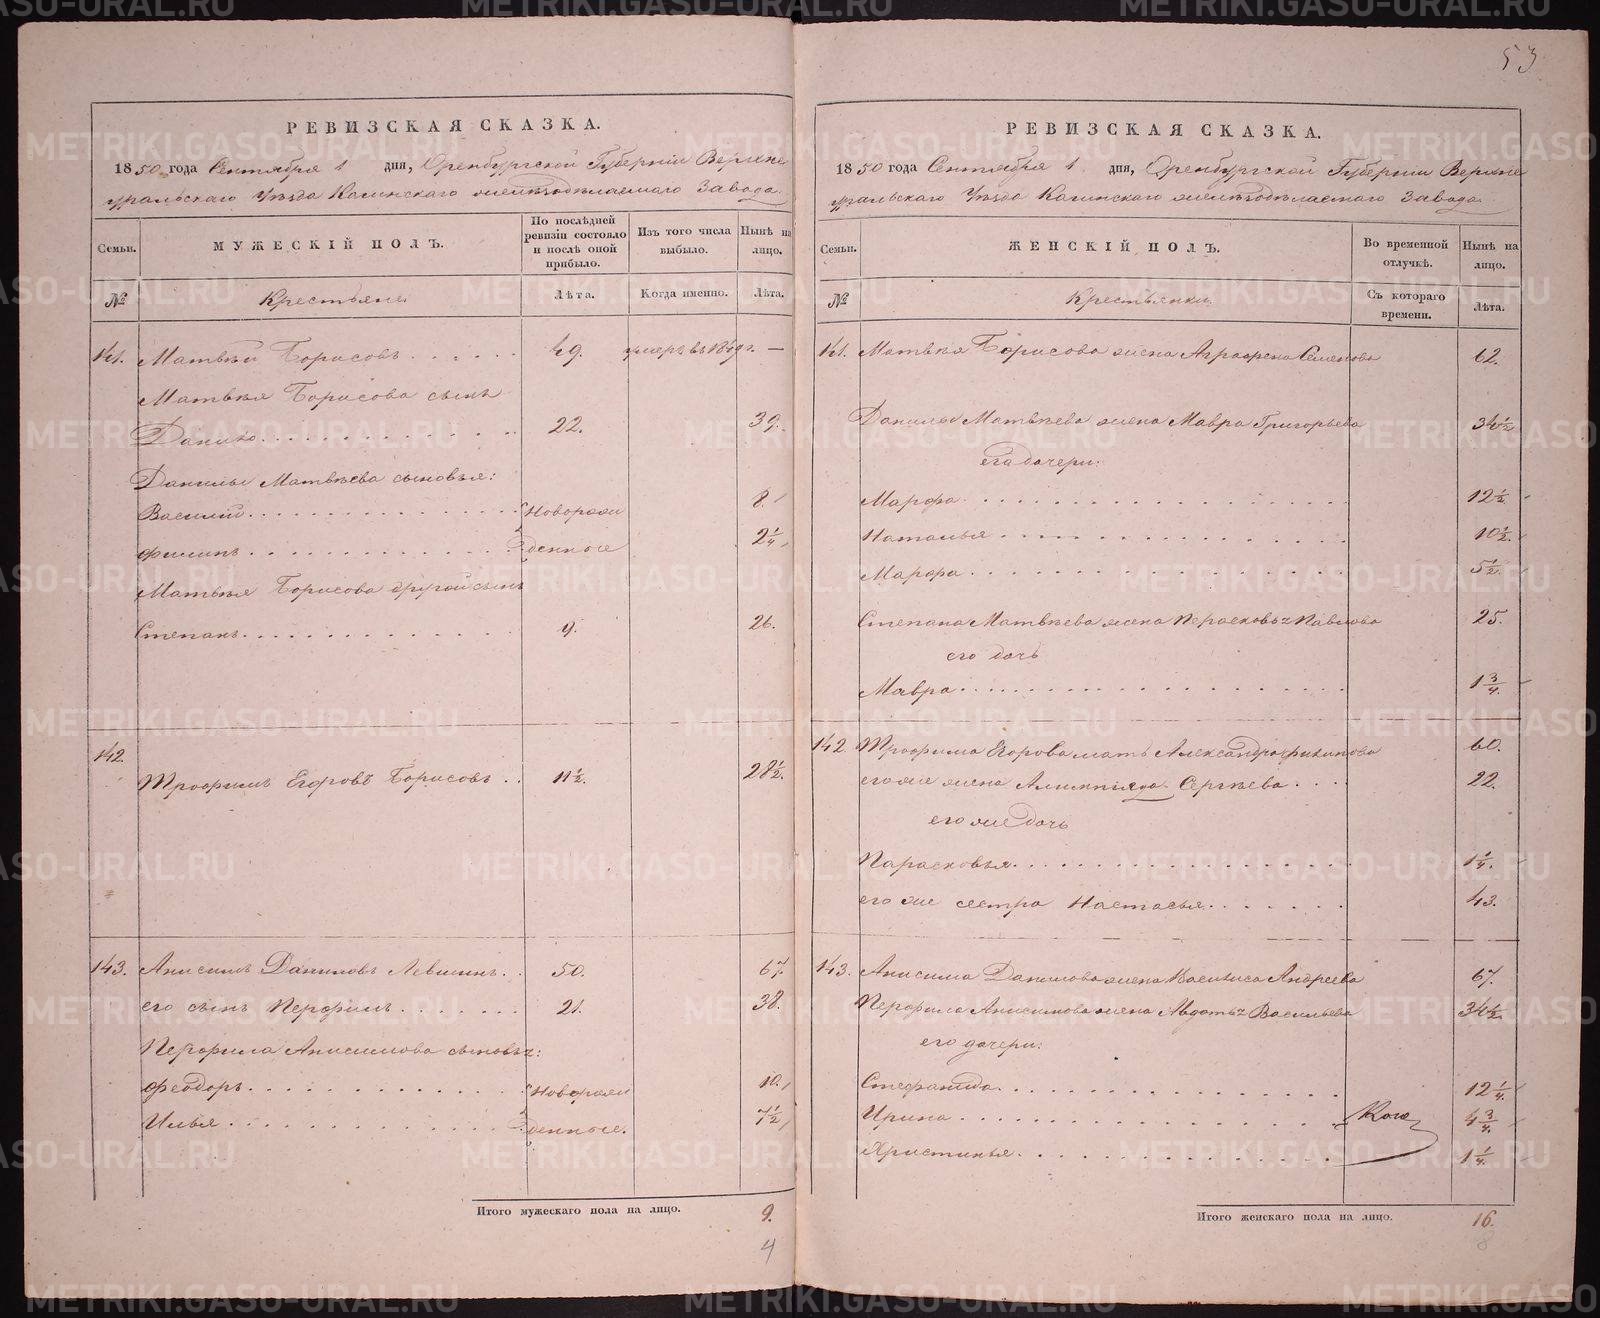 53
РЕВИЗСКАЯ СКАЗКА.
1850 года Сентября 1 дня, Оренбургской Губерніи Верхне
уральскаго Уѣзда Кагинскаго желѣзодѣлаемаго Завода.
Семьи.
МУЖЕСКІЙ ПОЛЪ.
По послѣдней ревизіи состояло и послѣ оной прибыло.
Изъ того числа выбыло.
Нынѣ на лицо.
№
Крестьяне
Лѣта.
Когда именно.
Лѣта.
141. Матвѣй Борисовъ 49. умеръ въ 1849 г. —
Матвѣя Борисова сынъ
Данило 22. 39.
Данилы Матвѣева сыновья:
Василій Новорож 8.
Филипъ денные 2 1/4
Матвѣя Борисова другой сынъ
Степанъ 9. 26.
142.
Трофимъ Егоровъ Борисовъ 11 1/2. 28 1/2.
143. Анисимъ Даниловъ Левшинъ 50. 67.
его сынъ Перфилъ 21. 38.
Перфила Анисимова сыновья:
Феодоръ Новорож 10.
Илья денные. 7 1/2
Итого мужескаго пола на лицо. 9.
4
РЕВИЗСКАЯ СКАЗКА.
1850 года Сентября 1 дня, Оренбургской Губерніи Верхне
уральскаго Уѣзда Кагинскаго желѣзодѣлаемаго Завода.
Семьи.
ЖЕНСКІЙ ПОЛЪ.
Во временной отлучкѣ.
Нынѣ на лицо.
№
Крестьянки.
Съ котораго времени.
Лѣта.
141. Матвѣя Борисова жена Аграфена Семенова 62.
Данилы Матвѣева жена Мавра Григорьева 34 1/2
его дочери:
Марфа 12 1/2.
Наталья 10 1/2.
Марфа 5 1/2.
Степана Матвѣева жена Парасковья Павлова 25.
его дочь
Мавра 1 3/4.
142. Трофима Егорова мать Александра Филипова 60.
его же жена Алимпіяда Сергѣева 22.
его же дочь
Парасковья 1 1/4.
его же сестра Настасья 43.
143. Анисима Данилова жена Василиса Андреева 67.
Перфила Анисимова жена Авдотья Васильева 34 1/2.
его дочери:
Стефанида 12 1/4.
Ирина 4 3/4.
Христинья 1 1/4.
Итого женскаго пола на лицо. 16.
8
METRIKI.GASO-URAL.RU